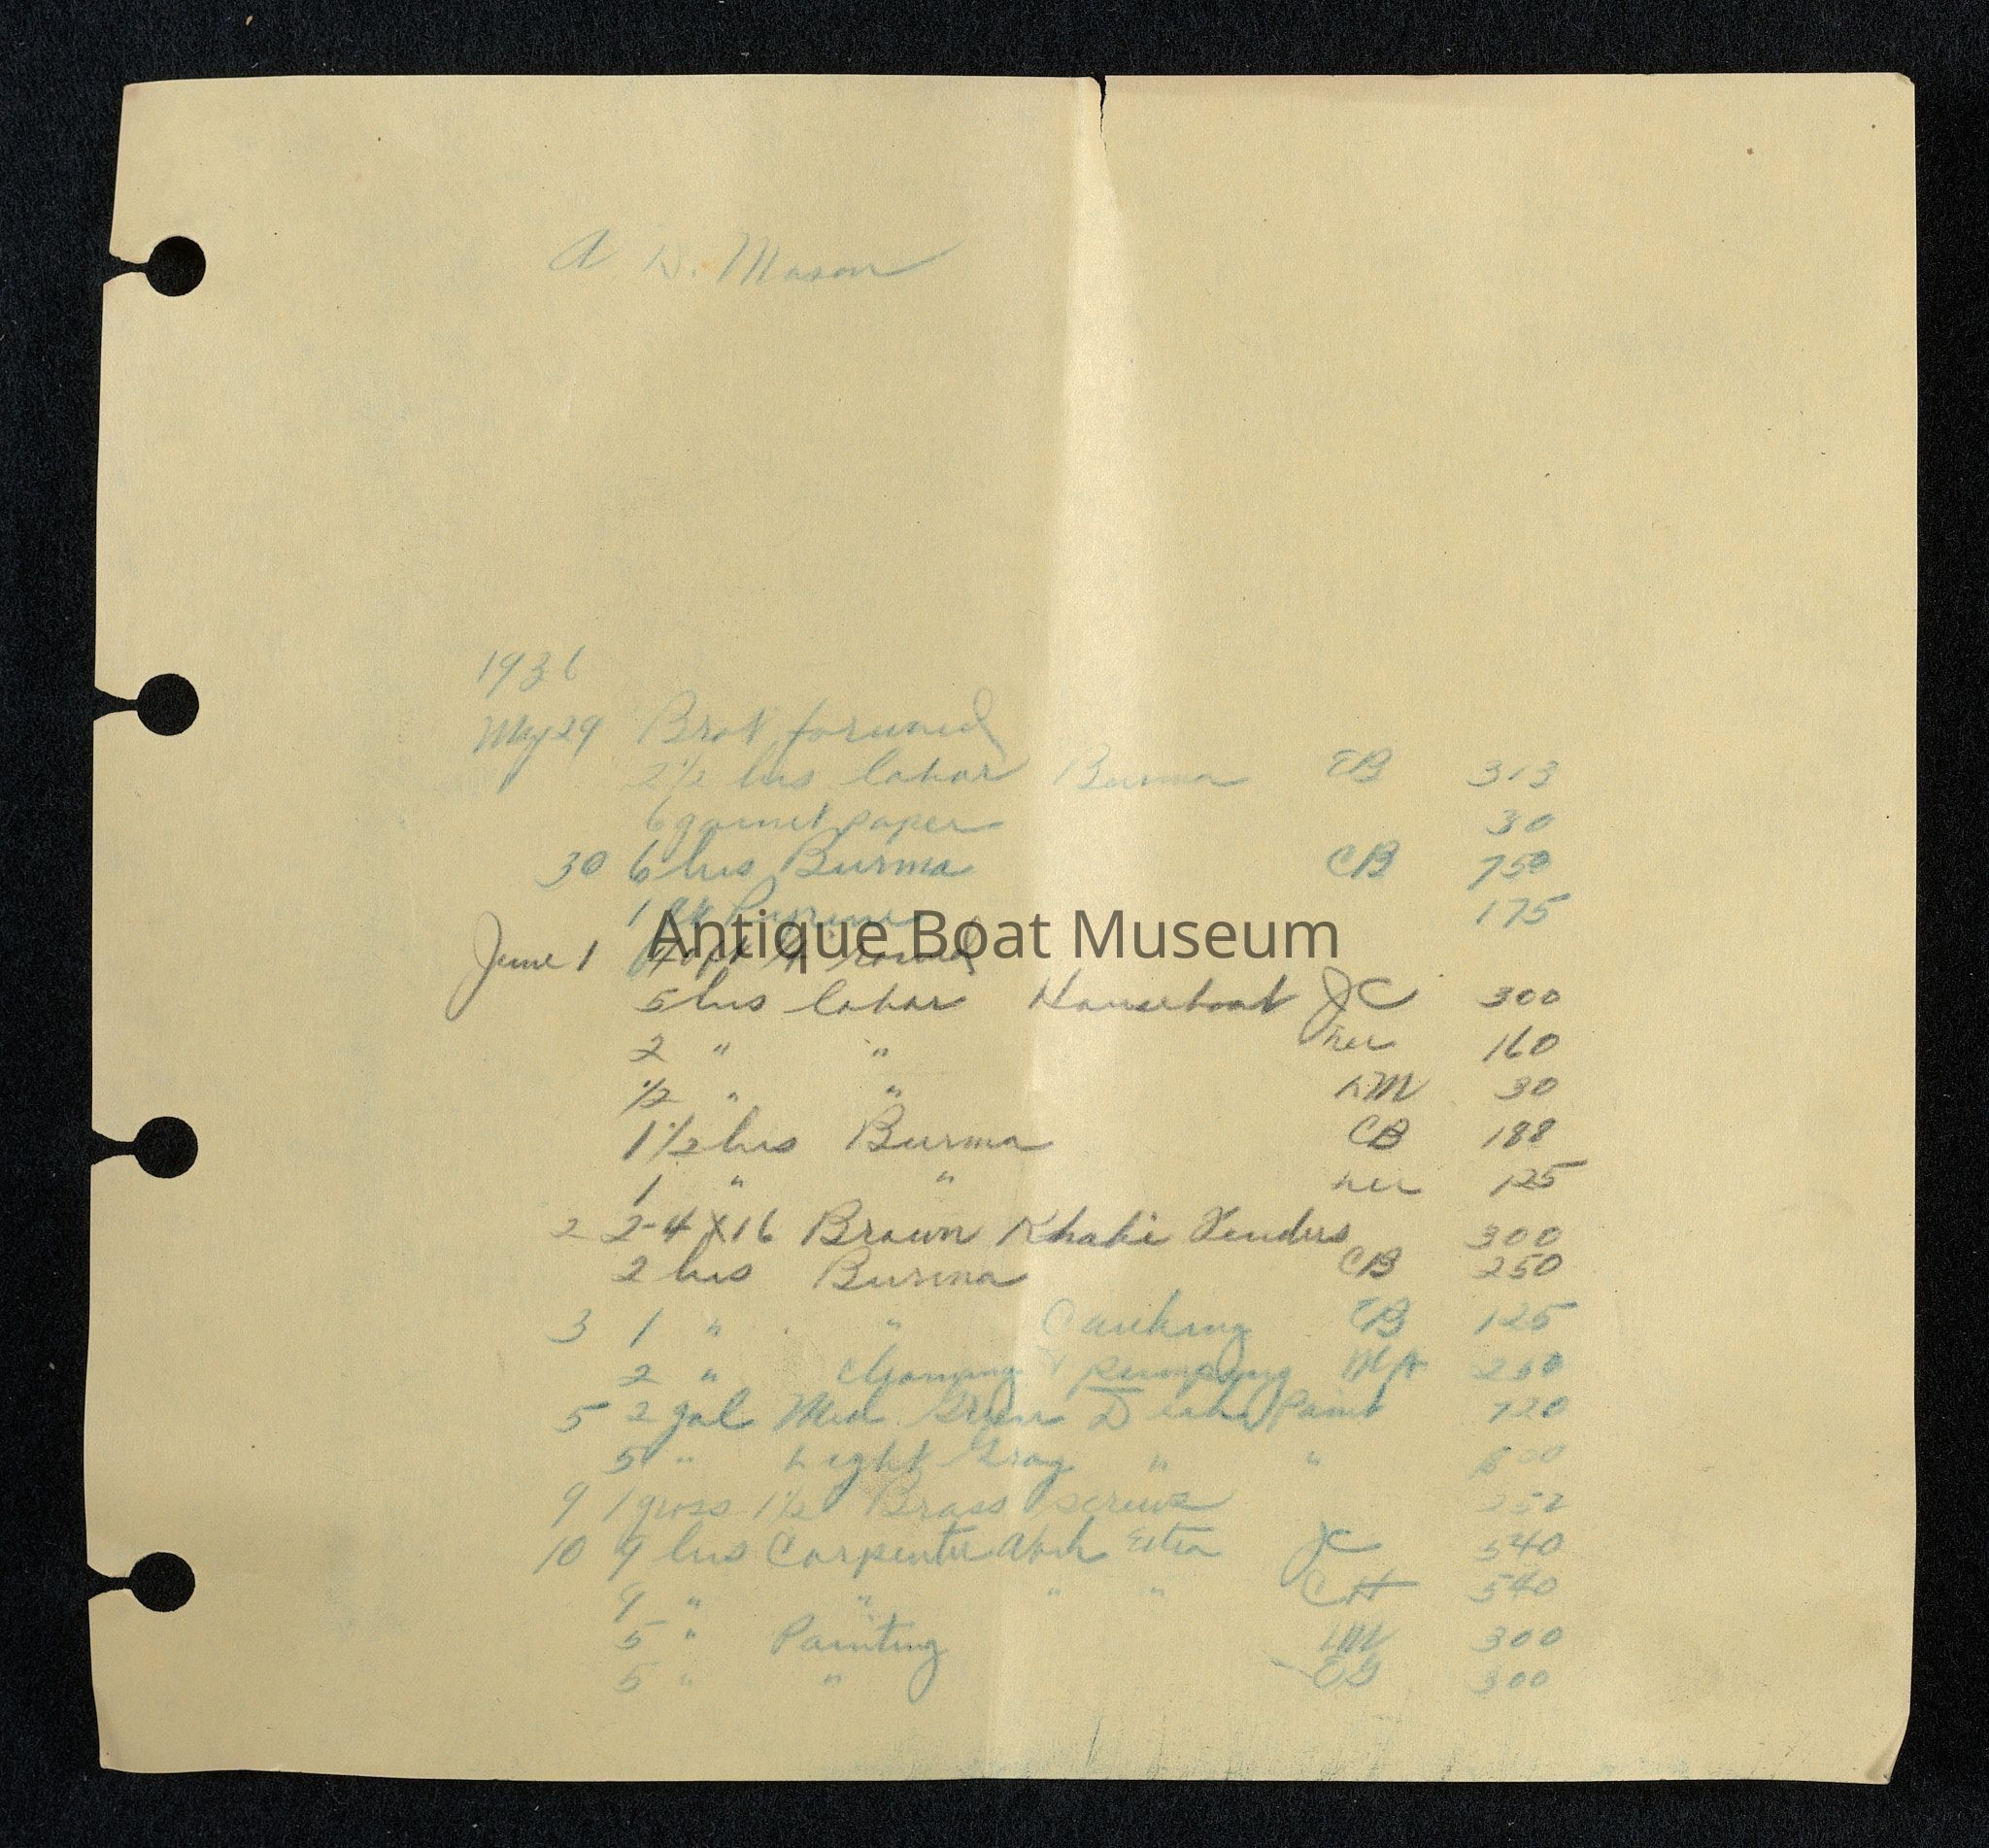 A. D. Mason
1936
May 29 Brot forward
2 1/2 hrs labor Burma EB 313
6 garnet paper 30
30 6 hrs Burma CB 750
1 175
Antique Boat Museum
June 1
5 hrs labor Houseboat JC 300
2 " " 160
1/2 " " LM 30
1 1/2 hrs Burma CB 188
1 " " 125
2 2-4 X 16 Brown Khaki Fenders 300
2 hrs Burma CB 250
3 1 " " Caulking EB 125
2 " Cleaning & pumping
5 2 gal Med Green Paint 720
5 " Light Gray " "
9 1 gross 1 1/2 Brass screws 252
10 9 hrs Carpenter Work Extra JC 540
9 " " " " CH 540
5 " Painting LM 300
5 " " 300